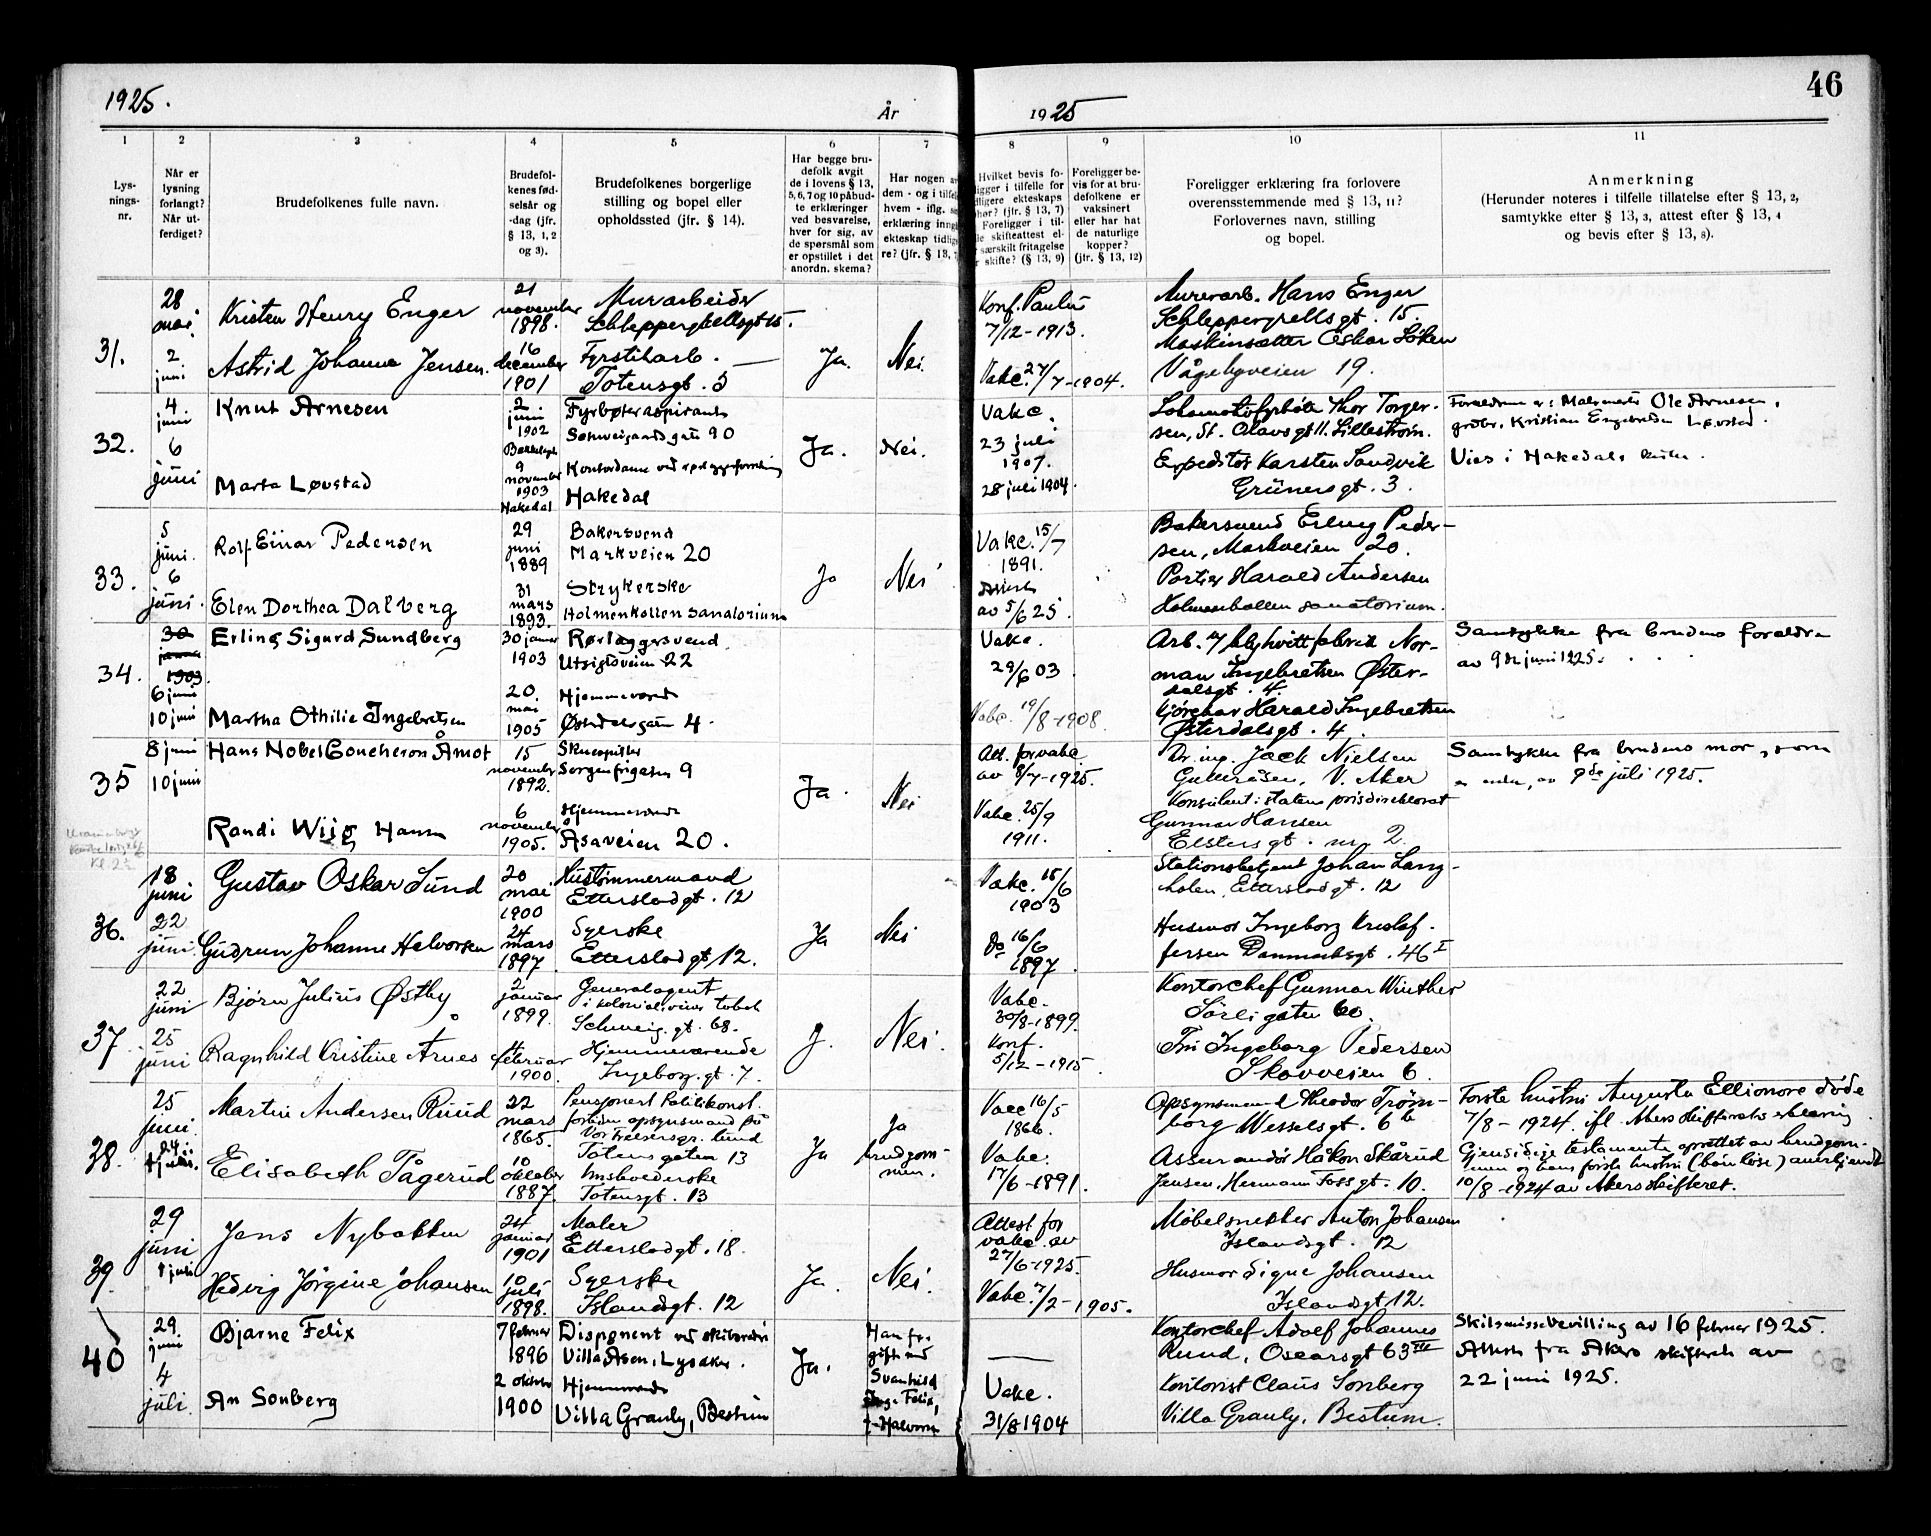 1925.
År
1925
46
1
2
3
4
5
6
7
8
9
10
11
Lys-
nings-
nr.
Når er
lysning
forlangt?
Når ut-
ferdiget?
Brudefolkenes fulle navn.
Brudefol-
kenes fød-
selsår og
-dag (jfr.
§ 13, 1, 2
og 3).
Brudefolkenes borgerlige
stilling og bopel eller
opholdssted (jfr. § 14).
Har begge bru-
defolk avgit
de i lovens § 13,
5, 6, 7 og 10 påbud-
te erklæringer
ved besvarelse,
hver for sig, av
de spørsmål som
er opstillet i det
anordn. skema?
Har nogen av
dem - og i tilfelle
hvem - iflg.
erklæring inng
ekteskap tidlig
re? (jfr. § 13, 7
Hvilket bevis fo-
ligger i tilfelle for
dligere ekteskaps
hør? (jfr. § 13, 7)
Foreligger i til-
le skifteattest el-
særskilt fritagelse
skifte? (§ 13, 9)
Foreligger be-
vis for at bru-
defolkene er
vaksinert
eller har hat
de naturlige
kopper?
(jfr. § 13, 12)
Foreligger erklæring fra forlovere
overensstemmende med § 13, 11?
Forlovernes navn, stilling
og bopel.
Anmerkning
(Herunder noteres i tilfelle tillatelse efter § 13, 2,
samtykke efter § 13, 3, attest efter § 13, 4
og bevis efter § 13, 8).
31.
28
mai
2
juni
Kristen Henry Enger
Astrid Johanne Jensen.
21
november
1898.
16
december
1901
Murarbeider
Schleppegrellsgt 15.
Fyrstikarb.
Totensgt. 5
Ja.
Nei.
Konf. Paulus
7/12-1913.
Vakc. 27/7-1904.
Murerarb. Hans Enger
Schleppegrellsgt. 15.
Maskinsætter Oskar Løken
Vågebyveien 19.
32.
4
juni
6
juni
Knut Arnesen
Marta Løvstad
2
juni
1902
9
november
1903
Hakedal
Fyrbøteraspirant
Schweigaards gate 90
Kontordame ved
Hakedal
Ja.
Nei.
Vakc.
23 juli
1907.
28 juli 1904.
Lokomotivfyrbøter Thor Torger-
sen, St. Olavsgt 11. Lillestrøm.
Expeditør Karsten Sandvik
Grünersgt. 3.
Foreldrene er: Malermester Ole Arnesen,
grdbr. Kristian Engebretsen Løvstad.
Vies i Hakedals kirke.
33.
5
juni.
6
juni.
Rolf Einar Pedersen
Elen Dorthea Dalberg
29
juni
1889
31
mars
1893.
Bakersvend
Markveien 20
Strykerske
Holmenkollen sanatorium
Ja
Nei
Vakc. 15/7
1891.
av 5/6 25.
Bakersvend Erling Peder-
sen, Markveien 20.
Portier Harald Andersen
Holmenkollen sanatorium.
34.
30
januar
1903.
6 juni
10 juni
Erling Sigurd Sundberg
Martha Othilie Ingebretsen
30 januar
1903
20.
mai
1905
Rørlæggersvend
Utsigtveien 22
Hjemmeværende
Østerdalsgaten 4.
Vakc.
29/6 03
Vakc. 19/8-1908
Arb. v/ blyhvittfabrik Nor-
man Ingebretsen Øster-
dalsgt. 4.
Kjørekar Harald Ingebretsen
Østerdalsgt. 4.
Samtykke fra brudens foreldre
av 9de juni 1925.
35
8 juni
10 juni
Hans Nobel Concheron Åmot
Randi Wiig Hansen
15
november
1892.
6
november
1905.
Skuespiller
Sorgenfrigaten 9
Hjemmeværende
Åsaveien 20.
Ja.
Nei
Att. for vakc.
av 8/7-1925.
Vakc. 25/9
1911.
Dr. ing. Jack Nielsen
V. Aker
Konsulent i statens prisdirektorat
Gunnar Hansen
Eilstersgt. nr. 2.
Samtykke fra brudens mor, som
er enke, av 9de juli 1925.
Kl. 2½
36.
18
juni
22
juni.
Gustav Oskar Sund
Gudrun Johanne Halvorsen
20
mai
1900
24
mars
1897
Hustømmermand
Etterstadgt. 12
Syerske
Etterstadgt 12.
Ja
Nei
Vakc. 15/6
1903
Do 16/6
1897
Stationsbetjent Johan Lang-
holen, Etterstadgt. 12
Husmor Ingeborg Kristof-
fersen Danmarksgt. 46 I
37
22
juni
25
juni
Bjørn Julius Østby
Ragnhild Kristine Årnes
2
januar
1899.
4
februar
1900.
Generalagent
i kolonial, vin tobak
Schweig. gt. 68.
Hjemmeværende
Ingeborg. gt. 7.
J.
Nei.
Vakc.
30/8-1899.
Konf.
5/12-1915.
Kontorchef Gunnar Winther
Sørligaten 60.
Fru Ingeborg Pedersen
Skovveien 6.
38.
25
juni.
24
juli.
Martin Andersen Ruud
Elisabeth Tågerud
22
mars
1865.
10
oktober
1887.
Pensjonert Politikonst.
forhen opsynsmand på
Vor Frelsersgr. lund
Totens gaten 13
Totensgt. 13
Ja
Ja
brudgom-
men.
Vacc 16/5
1866.
Vakc.
17/6-1891.
Opsynsmand Theodor Trøm-
borg Wesselsgt. 6 b
Assurandør Håkon Skårud
Jensen, Hermann Fossgt. 10.
Første hustru Augusta Ellionore døde
7/8-1924. ifl. Akers skifteretts erklæring
Gjensidige testamente oprettet av brudgom-
men og hans første hustru (barnløse) anerkjendt
10/8-1924 av Akers skifteret.
39.
29
juni
1 juli
Jens Nybakken
Hedvig Jørgine Johansen
24
januar
1901
10
juli
1898.
Maler
Etterstadgt. 18.
Syerske
Islandsgt. 12
Ja.
Nei.
Attest for
vakc. av
27/6-1925.
Vakc. 7/2-1905.
Møbelsnekker Anton Johansen
Islandsgt. 12
Husmor Signe Johansen
Islandsgt 12.
40
29.
juni
4
juli
Bjarne Felix
An Sonberg
7 februar
1896
2 oktober
1900
Disponent ved skibsrederi
Villa Åsen, Lysaker.
Hjemmeværende
Villa Granly, Bestum
Ja.
Han fr.
gift med
Svanhild
Inga Felix,
f. Halvorsen
Vakc.
31/8 1904
Kontorchef Adolf Johannes
Ruud, Oscarsgt 63 III
Kontorist Claus Sonberg
Villa Granly, Bestum.
Skilsmissebevilling av 16 februar 1925.
Attest fra Akers skifteret av
22 juni 1925.